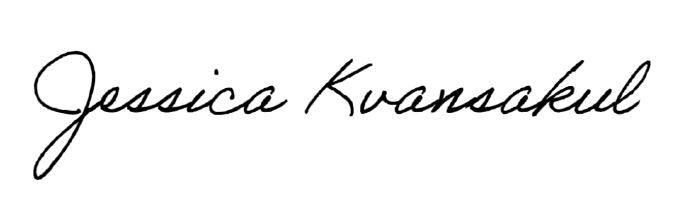 Jessica Kvansakul